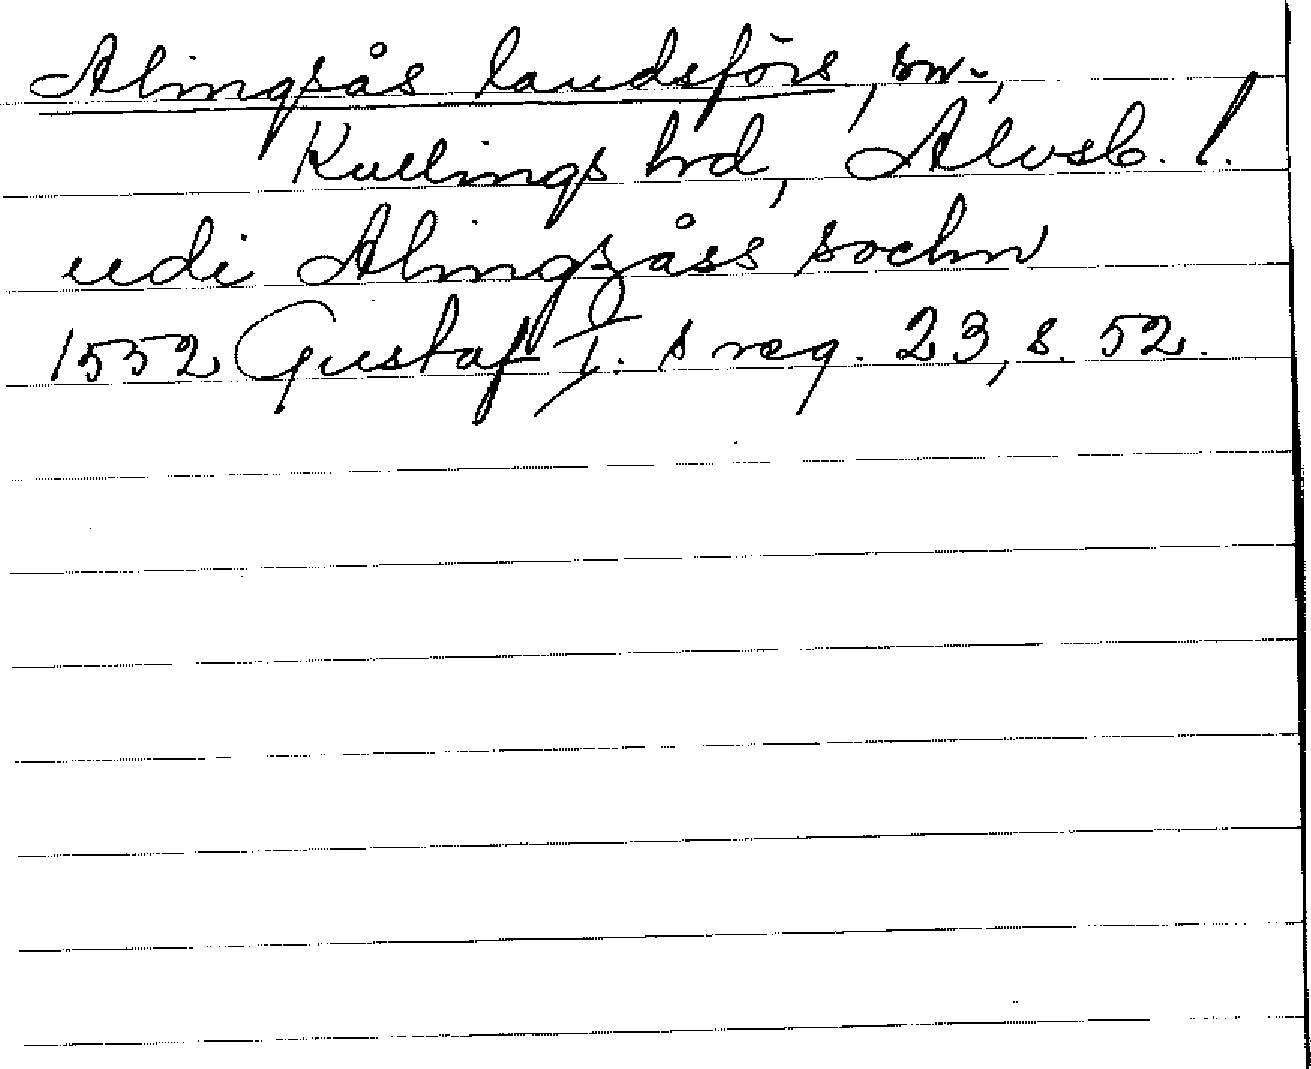 Alingsås landsförs, sn.,
Kullings hd, Älvsb. l.
udi Alingsåss sochn
1552 Gustaf I:s reg. 23, s. 52.